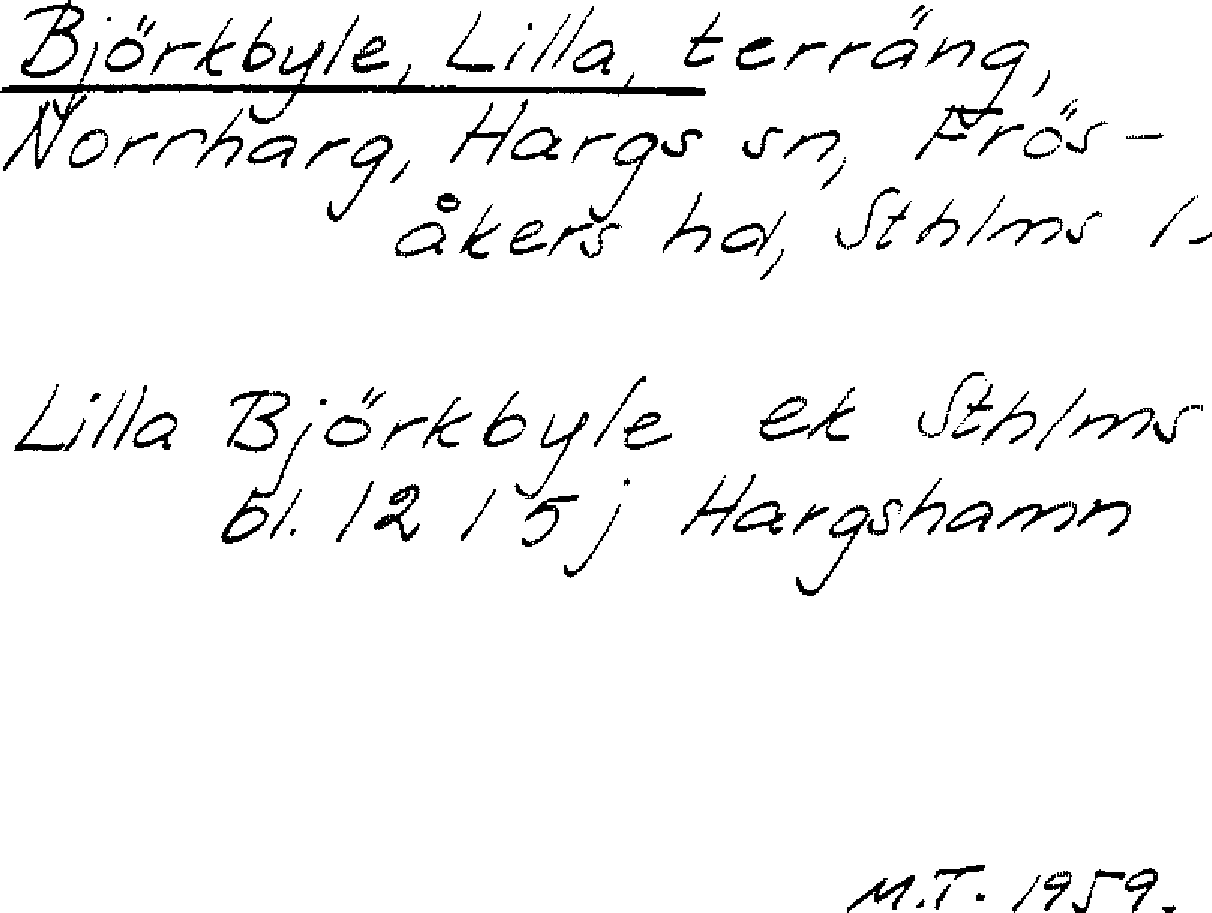 Björkbyle, Lilla, terräng,
Norrharg, Hargs sn, Frös-
åkers hd, Sthlms l.
Lilla Björkbyle ek Sthlms
bl. 12 I 5j Hargshamn
M.T. 1959.